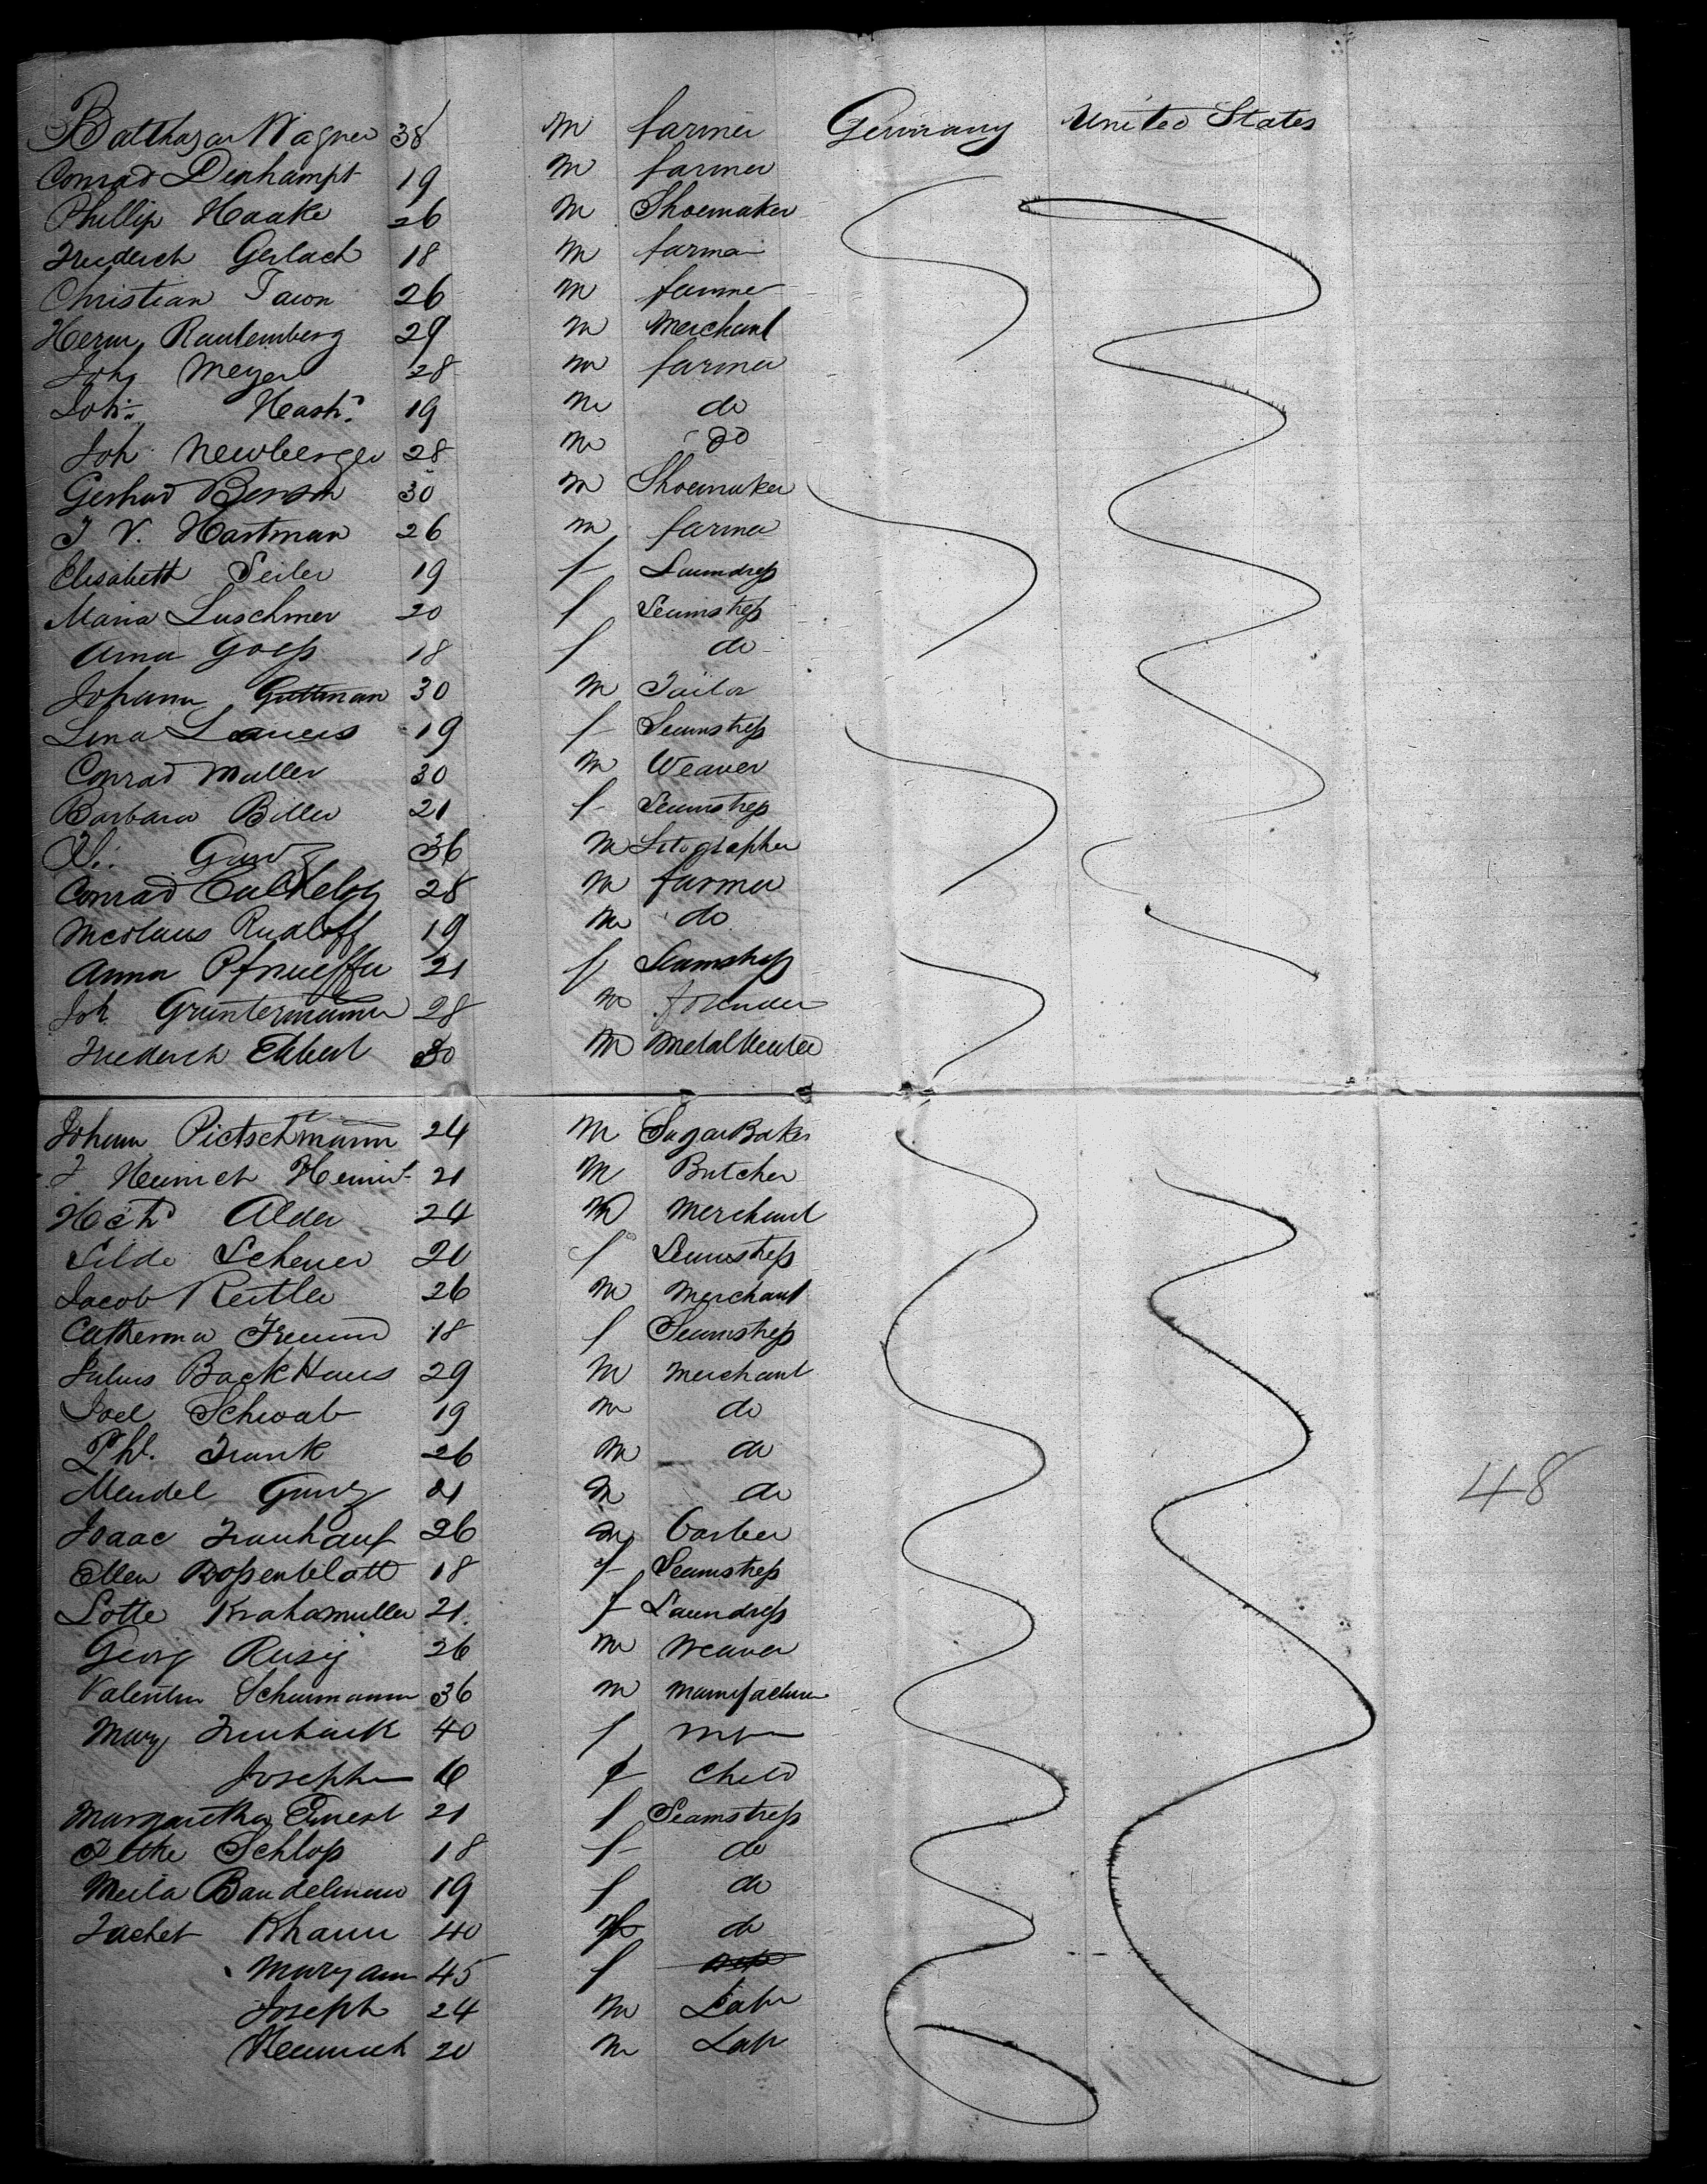 Balthazar Wagner 38 m farmer Germany United States
Conrad Denhampt 19 m farmer
Phillip Haake 26 m Shoemaker
Frederich Gerlach 18 m farmer
Christian 26 m farmer
Herm Rautemberg 29 m Merchant
Joh Meyer 28 m farmer
Joh 19 m do
Joh Newberger 28 m do
Gerhard Benson 30 m Shoemaker
J V. Hartman 26 m farmer
Elisabeth Seiler 19 f Laundress
Maria Luschmer 20 f Seamstress
Anna Goess 18 f do
Johann Guttman 30 m Tailor
Lina 19 f Seamstress
Conrad Muller 30 m Weaver
Barbara Biller 21 f Seamstress
Gunz 36 m Litographer
Conrad 28 m farmer
Nicolaus Rudloff 19 m do
Anna 21 f Seamstress
Joh Guntermann 28 m
Friederich Ekkert 30 m
Johann Pietschmann 24 m Sugar Baker
J Heinrich 21 m Butcher
Alder 24 m Merchant
Scheuer 20 f Seamstress
Jacob Reitler 26 m Merchant
Catherina 18 f Seamstress
Julius BackHaus 29 m Merchant
Joel Schwab 19 m do
Phl. Frank 26 m do
Mendel Gunz 21 m do
Isaac Frauhauf 26 m
Ellen Rossenblatt 18 f Seamstress
Lotte Krahamuller 21 f Laundress
Georg Rusig 26 m Weaver
Valentin Schurmann 36 m Manufacturer
Mary 40 f
Joseph 16 f Child
Margaretha Ernest 21 f Seamstress
Schloss 18 f do
Meila Bandelmann 19 f do
Khann 40 do
Mary ann 45 f
Joseph 24 m Labr
Heinrich 20 m Labr
48